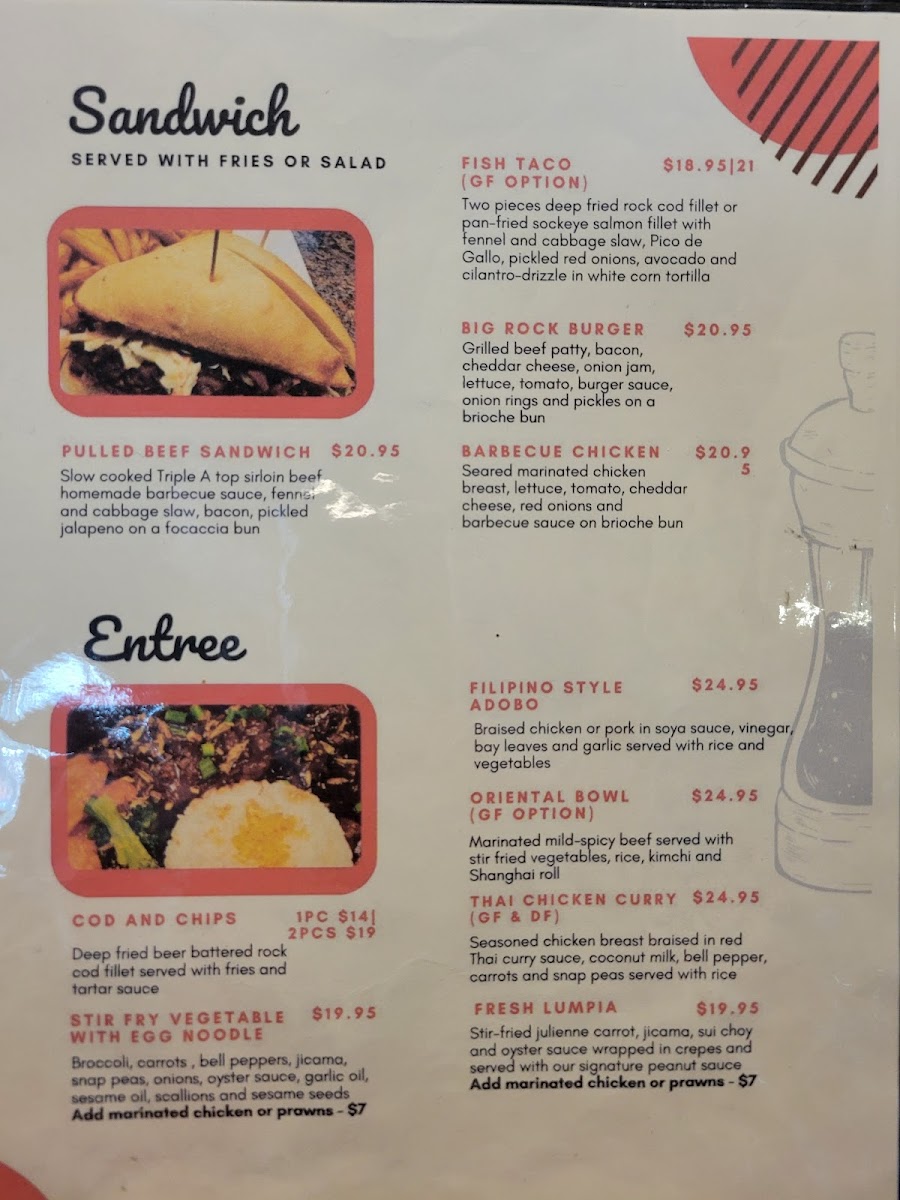 Sandwich
SERVED WITH FRIES OR SALAD
PULLED BEEF SANDWICH $20.95
Slow cooked Triple A top sirloin beef,
homemade barbecue sauce, fennel
and cabbage slaw, bacon, pickled
jalapeno on a focaccia bun
FISH TACO $18.95|21
(GF OPTION)
Two pieces deep fried rock cod fillet or
pan-fried sockeye salmon fillet with
fennel and cabbage slaw, Pico de
Gallo, pickled red onions, avocado and
cilantro-drizzle in white corn tortilla
BIG ROCK BURGER $20.95
Grilled beef patty, bacon,
cheddar cheese, onion jam,
lettuce, tomato, burger sauce,
onion rings and pickles on a
brioche bun
BARBECUE CHICKEN $20.9
5
Seared marinated chicken
breast, lettuce, tomato, cheddar
cheese, red onions and
barbecue sauce on brioche bun
Entree
COD AND CHIPS 1PC $14|
2PCS $19
Deep fried beer battered rock
cod fillet served with fries and
tartar sauce
STIR FRY VEGETABLE $19.95
WITH EGG NOODLE
Broccoli, carrots , bell peppers, jicama,
snap peas, onions, oyster sauce, garlic oil,
sesame oil, scallions and sesame seeds
Add marinated chicken or prawns - $7
FILIPINO STYLE $24.95
ADOBO
Braised chicken or pork in soya sauce, vinegar,
bay leaves and garlic served with rice and
vegetables
ORIENTAL BOWL $24.95
(GF OPTION)
Marinated mild-spicy beef served with
stir fried vegetables, rice, kimchi and
Shanghai roll
THAI CHICKEN CURRY $24.95
(GF & DF)
Seasoned chicken breast braised in red
Thai curry sauce, coconut milk, bell pepper,
carrots and snap peas served with rice
FRESH LUMPIA $19.95
Stir-fried julienne carrot, jicama, sui choy
and oyster sauce wrapped in crepes and
served with our signature peanut sauce
Add marinated chicken or prawns - $7